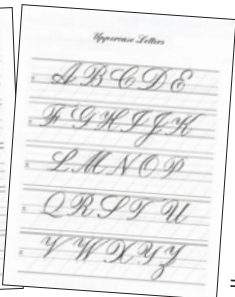 Uppercase Letters
A B C D E
F G H I J K
L M N O P
Q R S T U
V W X Y Z